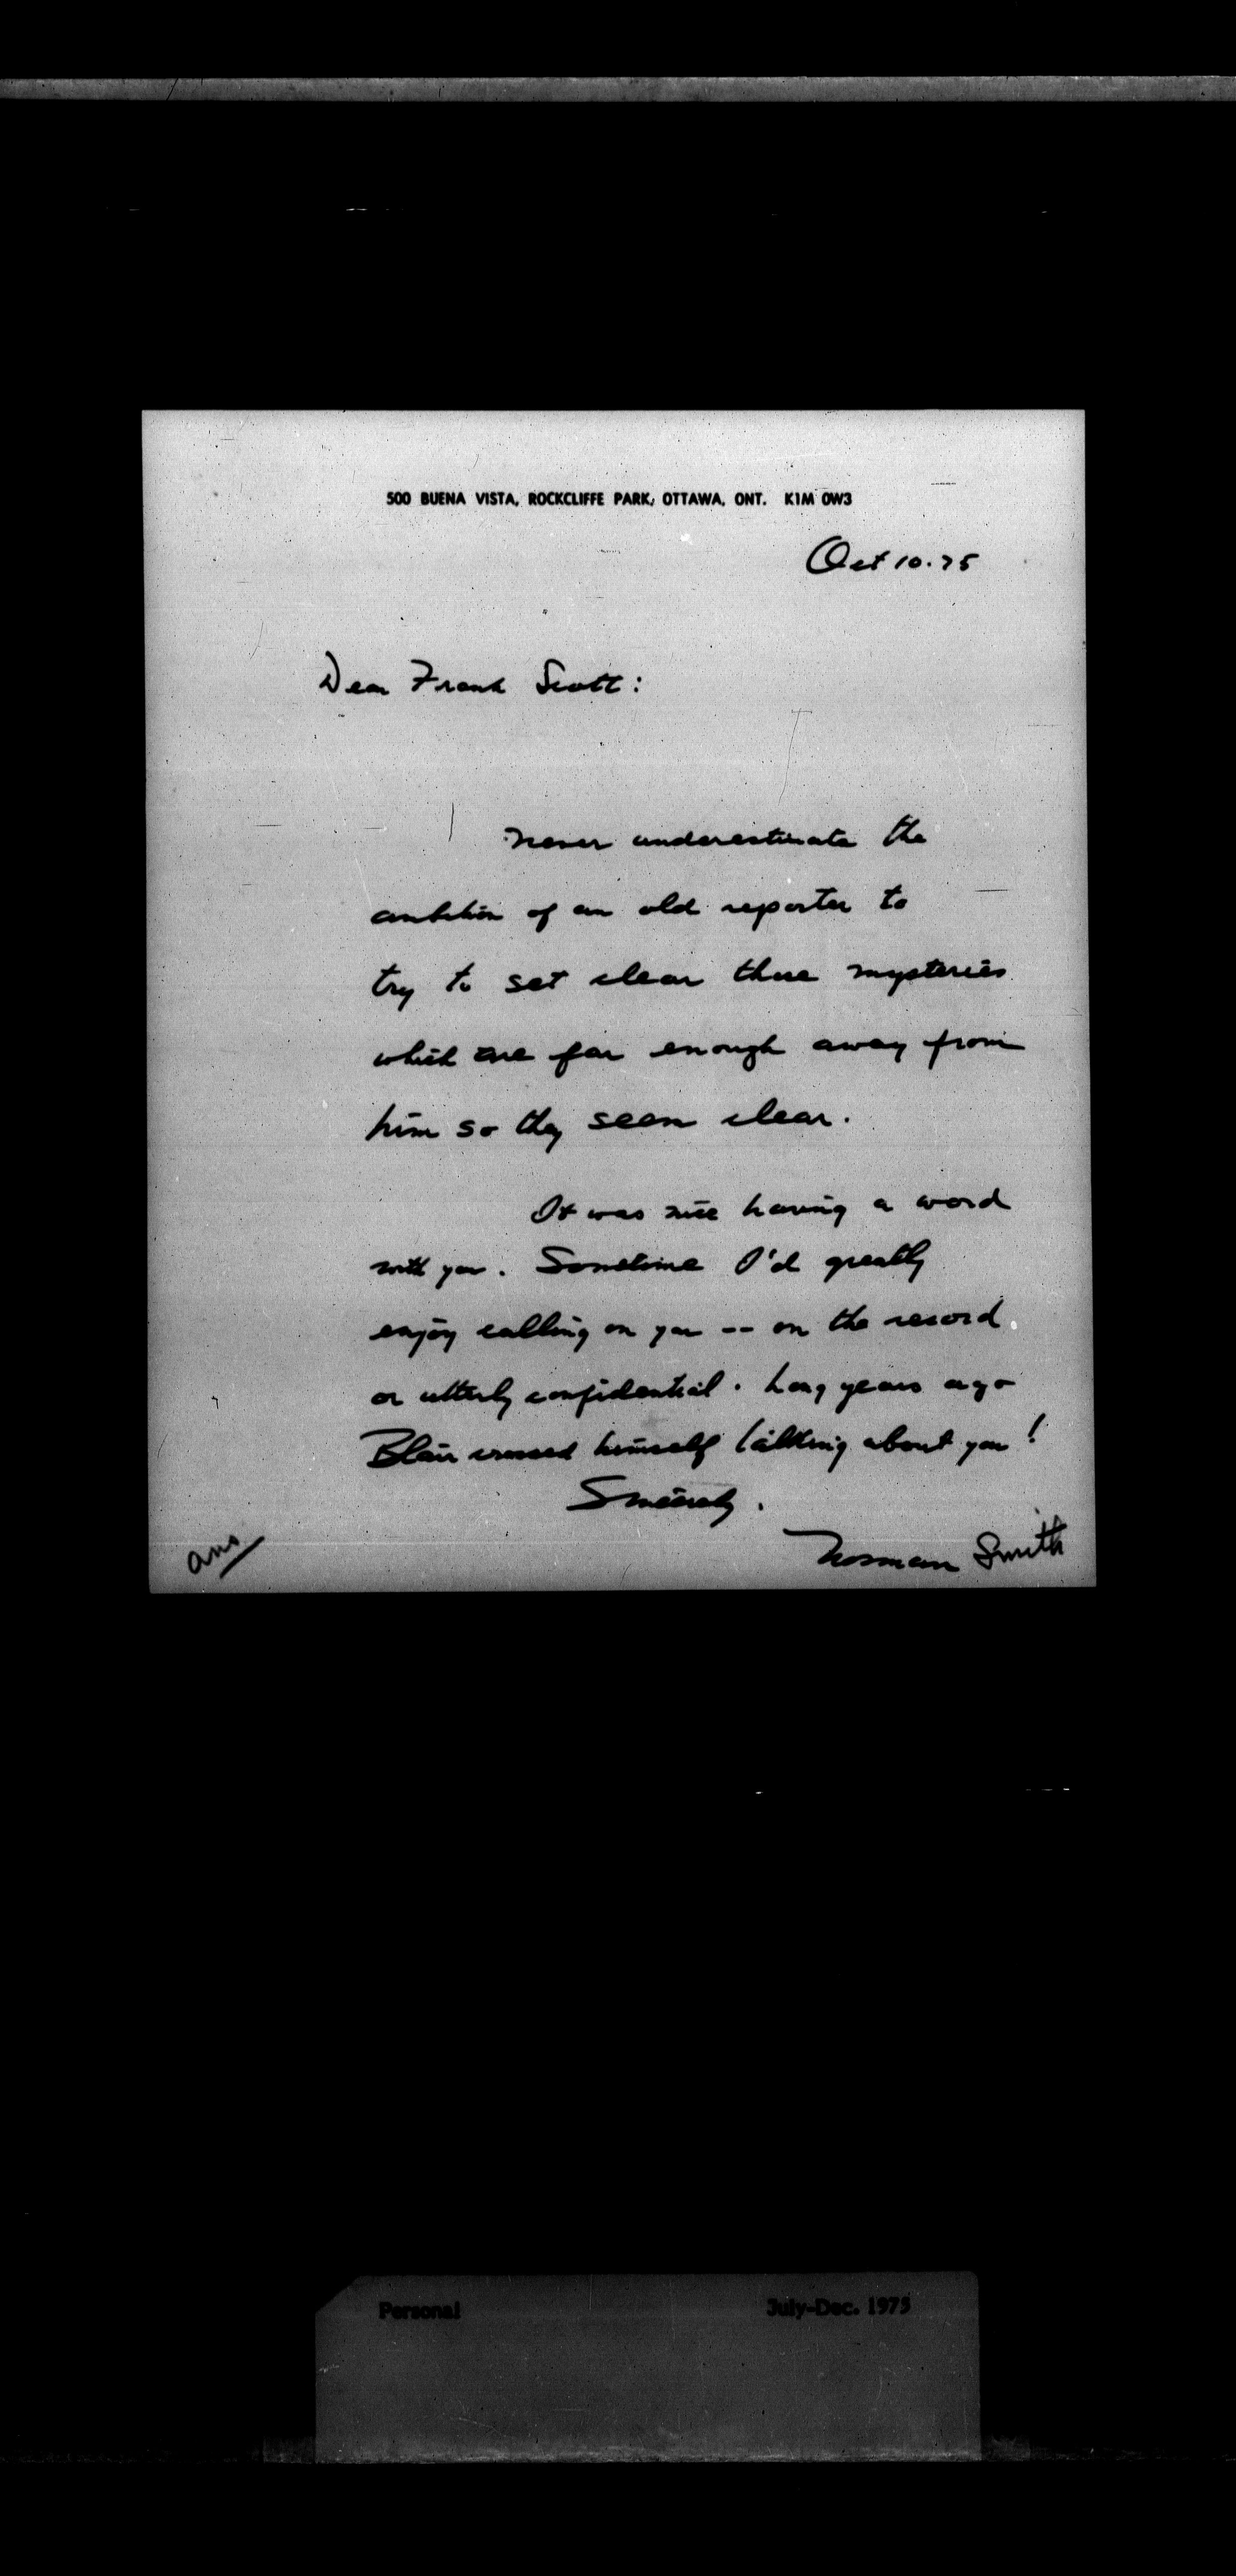 500 BUENA VISTA, ROCKCLIFFE PARK, OTTAWA, ONT. K1M 0W3
Oct 10.75
Dear Frank Scott:
Never underestimate the
ambition of an old reporter to
try to set clear those mysteries
which are far enough away from
him so they seem clear.
It was nice having a word
with you. Sometime I'd greatly
enjoy calling on you -- on the record
or utterly confidential. Long years ago
Blair crossed himself talking about you!
Sincerely,
Norman Smith
ans
Personal July-Dec. 1975